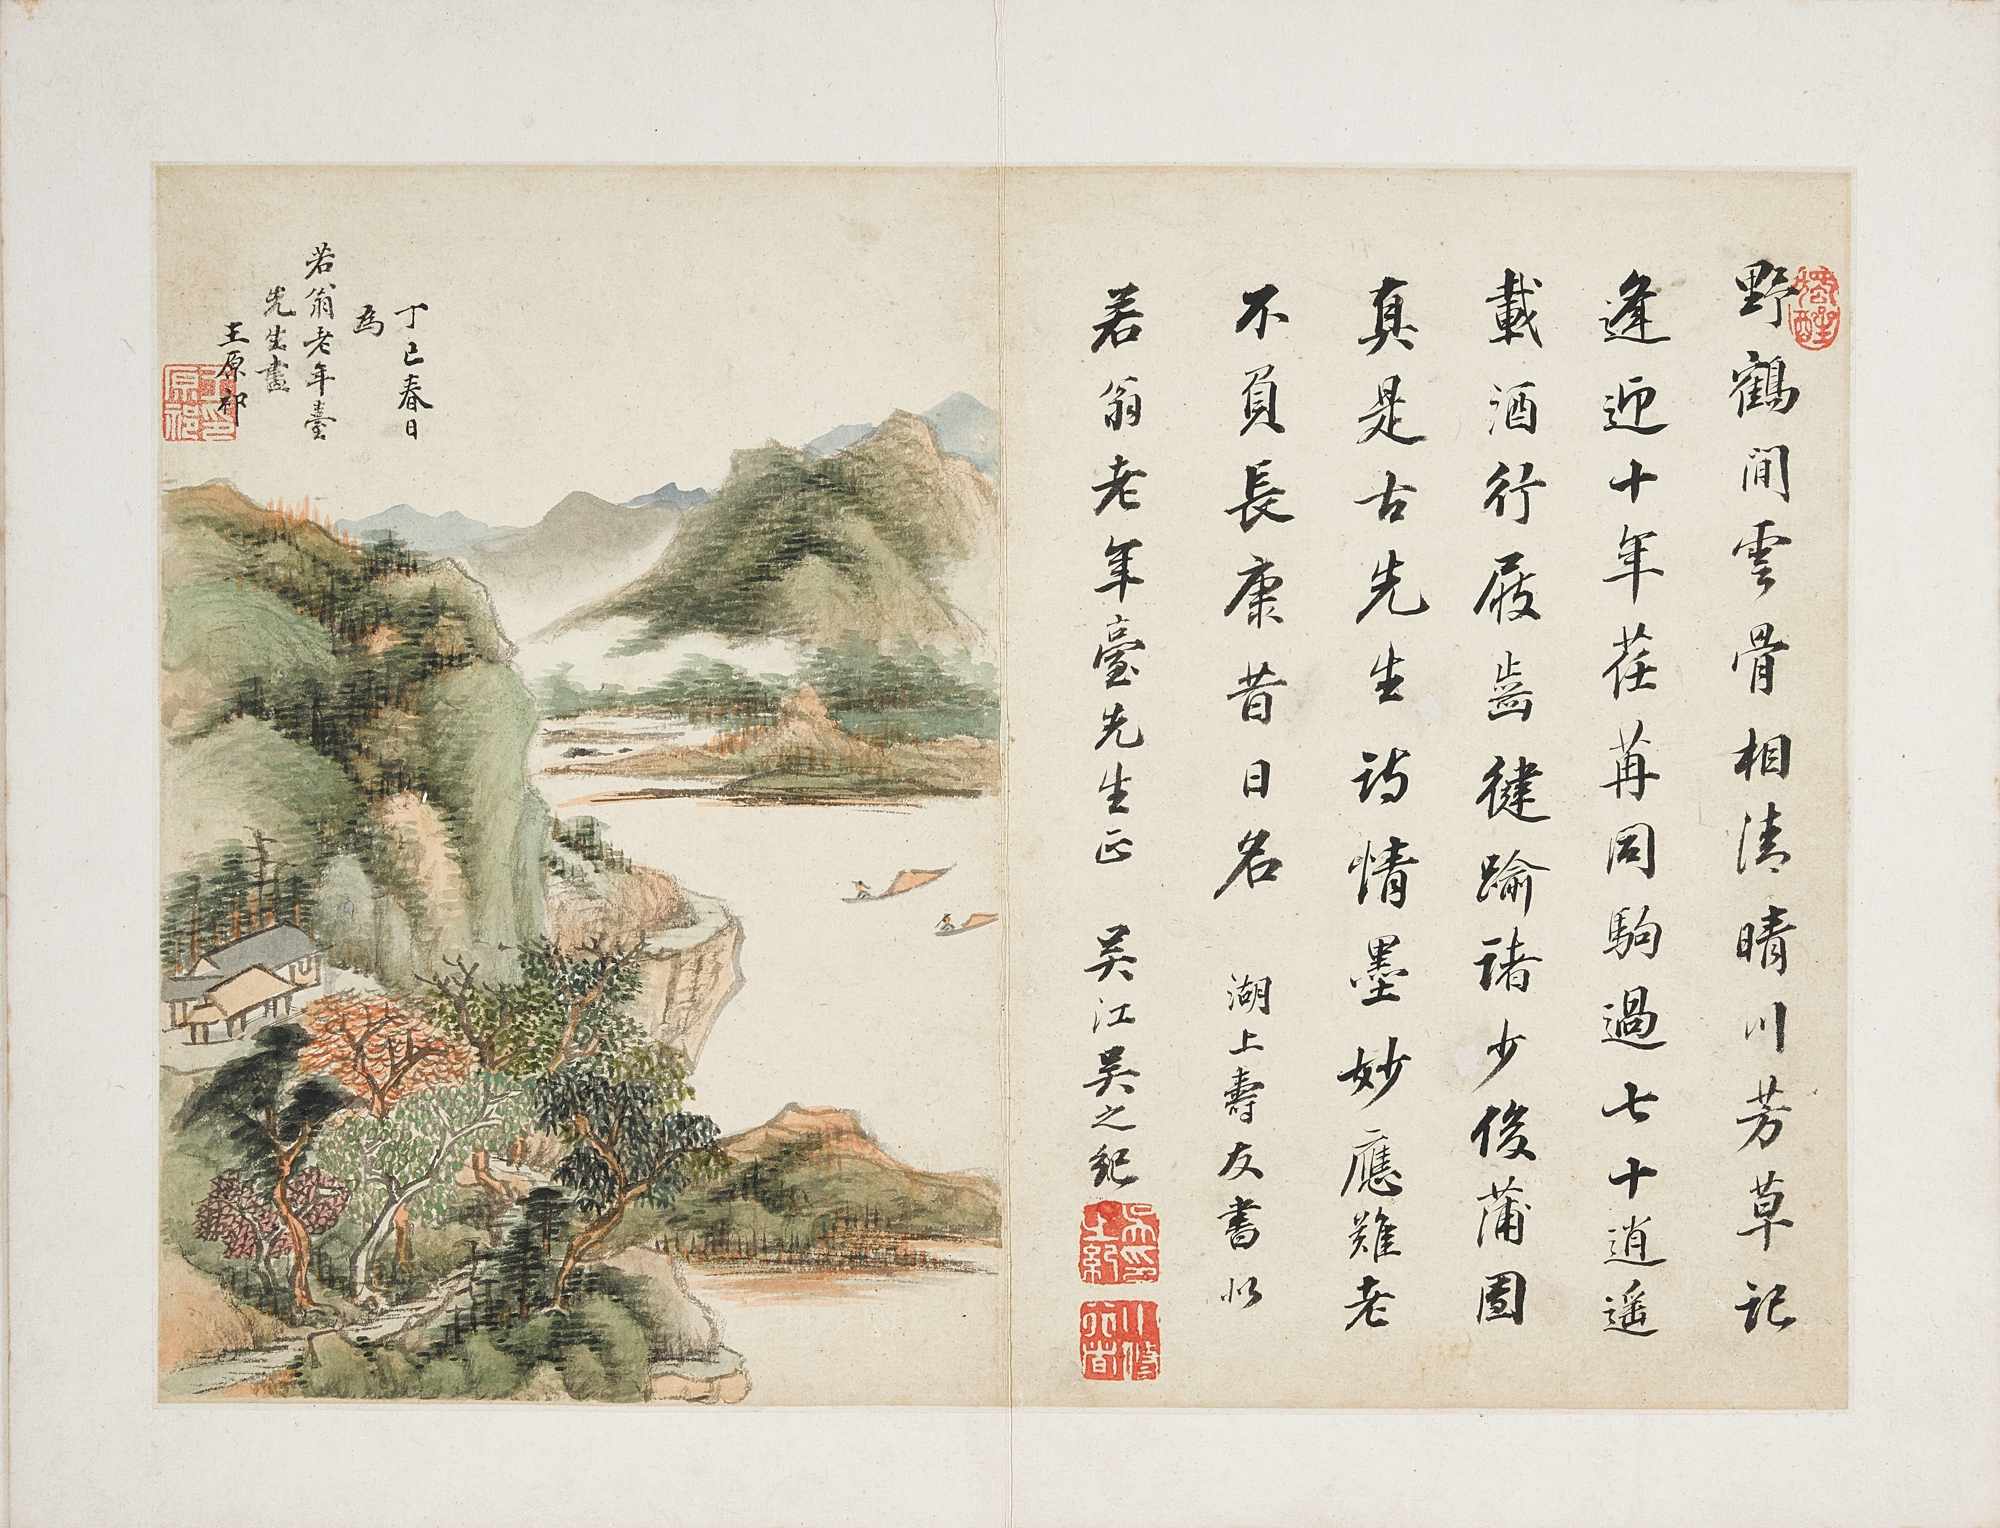 野鶴閒雲骨相清晴川芳草記
逢迎十年荏苒同駒過七十逍遥
載酒行屐齒健踰諸少俊蒲團
真是古先生詩情墨妙應難老
不負長康昔日名 湖上壽友書似
若翁老年臺先生正 吴江吴之紀
丁巳春日
為
若翁老年臺
先生畫
王原祁